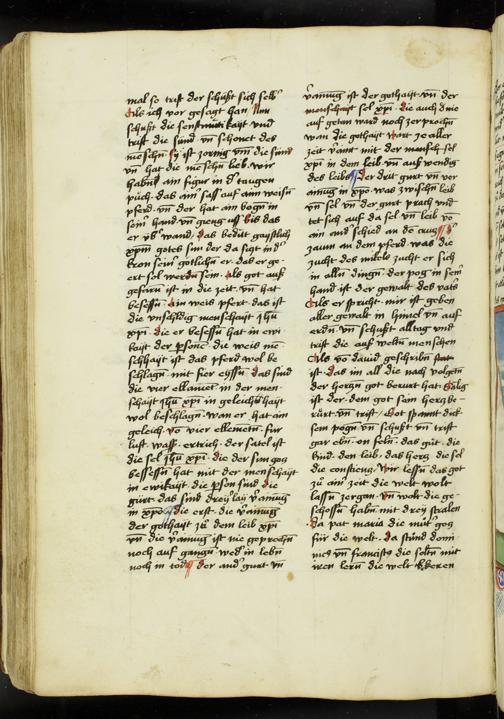 mal so trift der schußt sich selb
Als ich vor gesagt han Nun
schußt die senftmütikayt vnd
trift die sünd vn̄ schonet des
menschn̄ Er ist zornig vnn die sünd
vn̄ hat die menschn̄ lieb wir
habn̄ am figur in d' taugen
puch das am̄ saß auf am weissn̄
pferd vn̄ der hat am bogn̄ in
seinr̄ hand vn̄ gieng auß bis das
er vb'wand das bedüt gaystlich
xpm̄ gotes sun der da sigt ind'
kron seinr̄ gotlichn̄ er das er ge-
ert sol werdn̄ sein Als got auß
gefarn̄ ist in die zeit vn̄ hat
besessn̄ Ain weis pferd das ist
die vnschldig menschayt ihū
xpi die er besessn̄ hat in ewi
kayt der psonē die weis me
schhayt ist das pferd wol be
schlagn̄ mit fier eyssn̄ das sind
die vier ellament in der men-
schayt ihū xpi in geleichhayt
wol beschlagn̄ wan er hat am
geleich vo vier ellemetn̄ für
luft wass' ertrich der satel ist
die sel ihū xpi die der sun gotz
besessn̄ hat mit der menschayt
in ewikayt die pson sind die
gürt das sind dreylay v'ainug
in xpo die erst die v'ainug
der gothayt zů dem leib xpi
vn̄ die v'ainug ist nie geprochn̄
noch auf gangn̄ wed' in lebn̄
noch in tod der and' gurt vn̄
v'ainug ist der gothayt vn̄ der
menschayt sel xpi die auch d nie
auf getan ward noch zerprochn̄
wan die gothayt wart ye aller
zeit v'aint mit der mensch sel
xpi in dem leib vn̄ auswendig
des leibs der drit gurt vn̄ ver
ainug in xpo was zwischn̄ leib
vn̄ sel vn̄ der gurt prach vnd
tet sich auf da sel vn̄ leib vō
ain and' schied an dē crutz
zaum an dem pferd was die
zucht des mitels zucht er sich
in alln̄ dingn̄ der pog in sein̄
hand ist der gewalt des vats
Als er spricht mir ist geben
aller gewalt in himel vn̄ auf
erdn̄ vn̄ schußt alltag vnd
trift die auß weltn̄ menschen
Als vō dauid geschribn̄ stat
ist das im all die nach volgetn̄
der hertzn̄ got berurt hat Sälig
ist der dem got sein hertz be-
rürt vn̄ trift Got spannt dick
sein pogn̄ vn̄ schußt vn̄ trift
gar ebn̄ on seln̄ das güt die
kind den leib das hertz die sel
die constientz Wir lessn̄ das got
zů ain' zeit die welt wolt
lassn̄ zergan vn̄ wolt die ge-
schossn̄ habn̄ mit drey stralen
da pat maria die mut' gotz
für die welt da stünd domi
nic9 vn̄ francisc9 die soltn̄ mit
iren lern̄ die welt bkeren